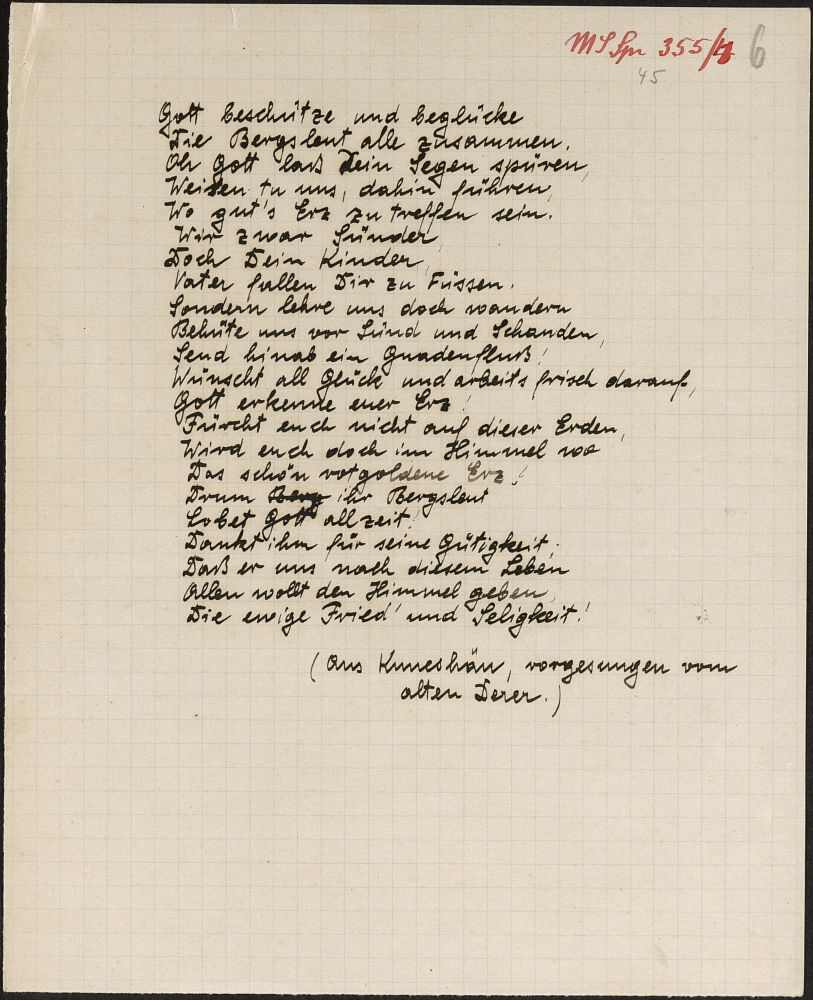 MS Spr 355/4 6
45
Gott beschütze und beglücke
Die Bergsleut alle zusammen.
Oh Gott laß Dein Segen spüren,
Weisen tu uns, dahin führen,
Wo gut's Erz zu treffen sein.
Wir zwar Sünder,
Doch Dein Kinder,
Vater fallen Dir zu Füssen.
Sondern lehre uns doch wandern
Behüte uns vor Sünd und Schanden,
Send hinab ein Gnadenfluß!
Wünscht all Glück und arbeits frisch darauf,
Gott erkenne euer Erz!
Fürcht euch nicht auf dieser Erden,
Wird euch doch im Himmel wo
Das schön rotgoldene Erz!
Drum Berg ihr Bergsleut
Lobet Gott allzeit!
Dankt ihm für seine Gütigkeit.
Daß er uns nach diesem Leben
Allen wollt den Himmel geben,
Die ewige Fried' und Seligkeit!
(Aus Kuneshäu, vorgesungen vom
alten Derer.)